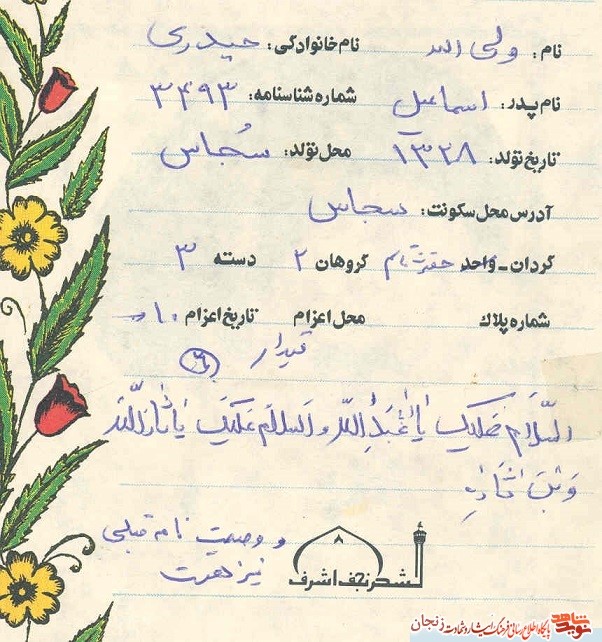 نام: ولی الله نام خانوادگی: حیدری
نام پدر: اسماعیل شماره شناسنامه: ۳۴۹۳
تاریخ تولد: ۱۳۲۸ محل تولد: سُجاس
آدرس محل سکونت: سجاس
گردان ـ واحد گروهان ۲ دسته ۳
شماره پلاک محل اعزام تاریخ اعزام ۱۰
قیدار
السَّلام عَلیک یا اَبا عَبدِ اللّه و السلامُ عَلَیکَ یا ثارَ اللّه
وَ بنَ ثارِه
و وصیت نامه قبلی
نیز هست
لشکر نجف اشرف
۸
نوید شاهد پایگاه اطلاع رسانی فرهنگ ایثار و شهادت زنجان